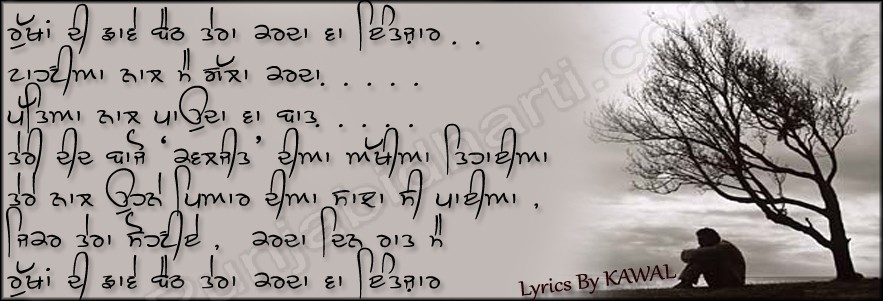 ਰੁੱਖਾਂ ਦੀ ਛਾਵੇਂ ਬੈਠ ਤੇਰਾ ਕਰਦਾ ਵਾ ਇੰਤਜ਼ਾਰ . .
ਟਾਹਣੀਆ ਨਾਲ ਮੈਂ ਗੱਲਾ ਕਰਦਾ. . . . . .
ਪੱਤਿਆ ਨਾਲ ਪਾਉਂਦਾ ਵਾ ਬਾਤ. . . . .
ਤੇਰੀ ਦੀਦ ਬਾਜੋਂ ‘ਕਵਲਜੀਤ’ ਦੀਆ ਅੱਖੀਆ ਤਿਹਾਈਆ
ਤੇਰੇ ਨਾਲ ਉਹਨੇ ਪਿਆਰ ਦੀਆ ਸਾਂਝਾ ਸੀ ਪਾਈਆ ,
ਜਿਕਰ ਤੇਰਾ ਸੋਹਣੀਏ , ਕਰਦਾ ਦਿਨ ਰਾਤ ਮੈਂ
ਰੁੱਖਾਂ ਦੀ ਛਾਵੇਂ ਬੈਠ ਤੇਰਾ ਕਰਦਾ ਵਾ ਇੰਤਜ਼ਾਰ
Lyrics By KAWAL